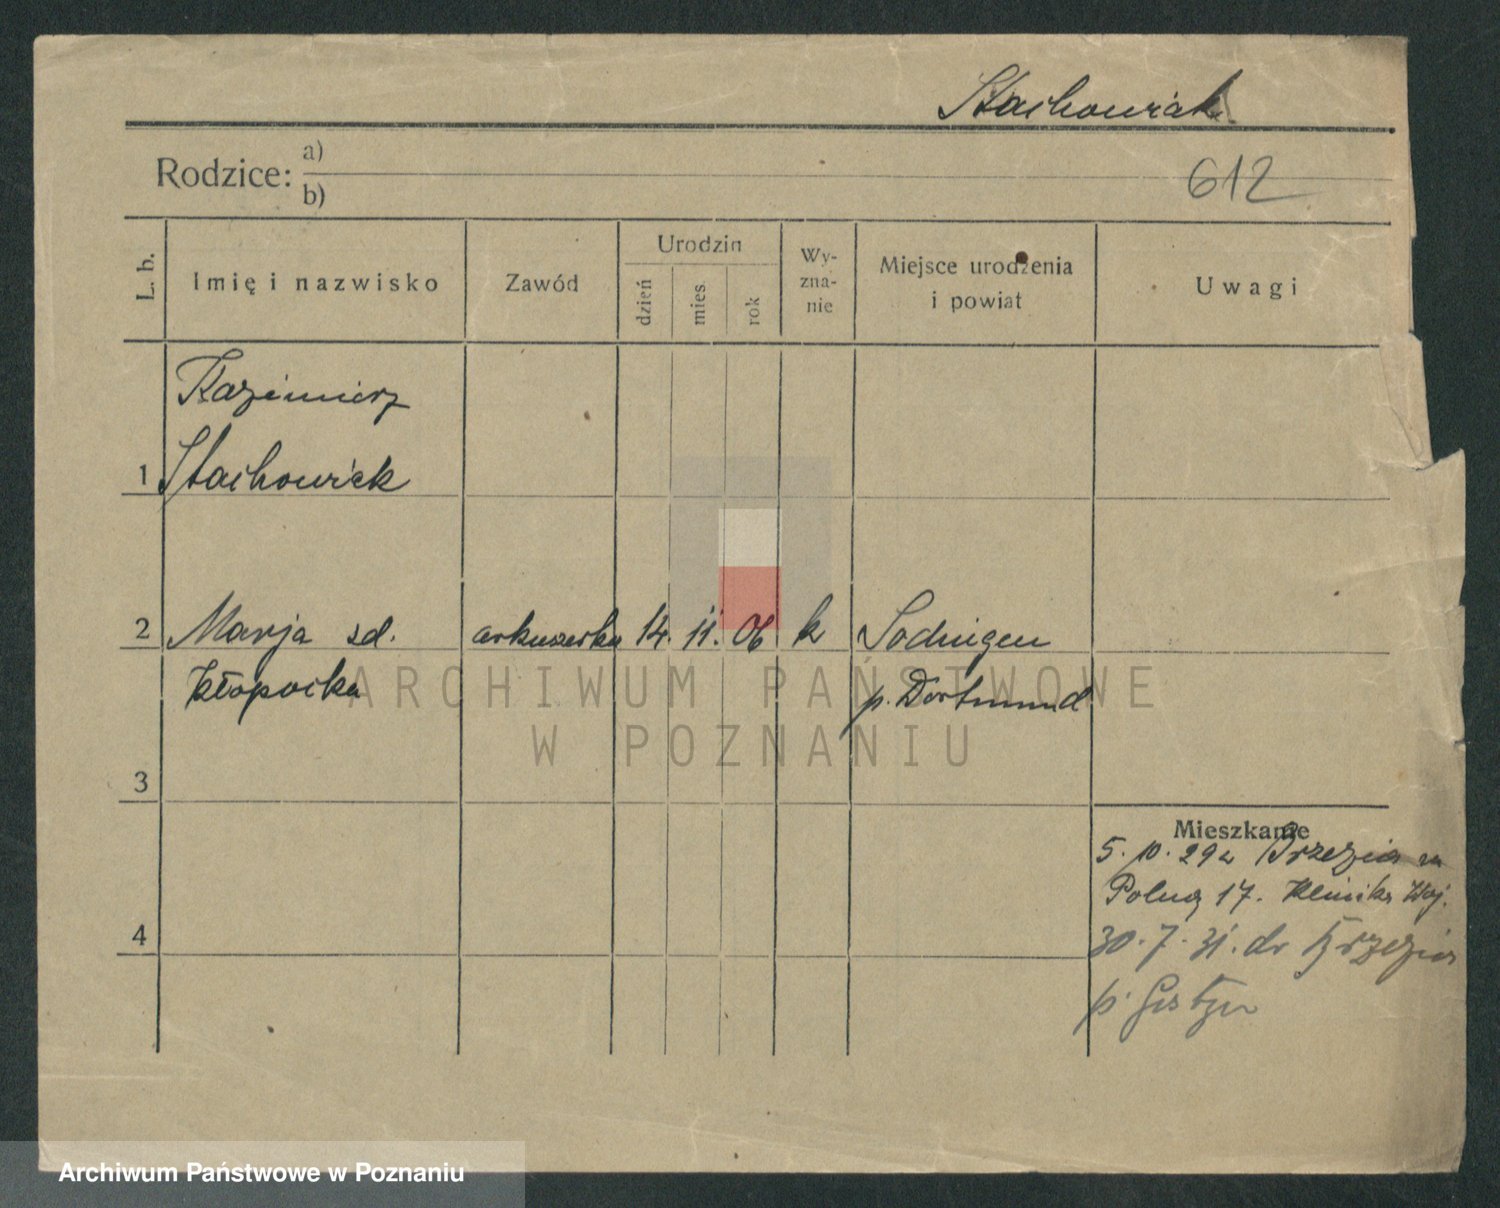 Stachowiak
Rodzice: a)
b)
612
L. b.
Imię i nazwisko
Zawód
Urodzin
dzień
mies.
rok
Wy-
zna-
nie
Miejsce urodzenia
i powiat
Uwagi
Kazimierz
1 Stachowiak
2 Marja zd. akuszerka 14. 11. 06 k Sodingen
Kłopocka p. Dortmund
ARCHIWUM PAŃSTWOWE
W POZNANIU
3
Mieszkanie
5. 10. 29 z Brzezia
Polna 17. Klinika
4
30. 7. 31. do Brzezia
p. Gostyń
Archiwum Państwowe w Poznaniu